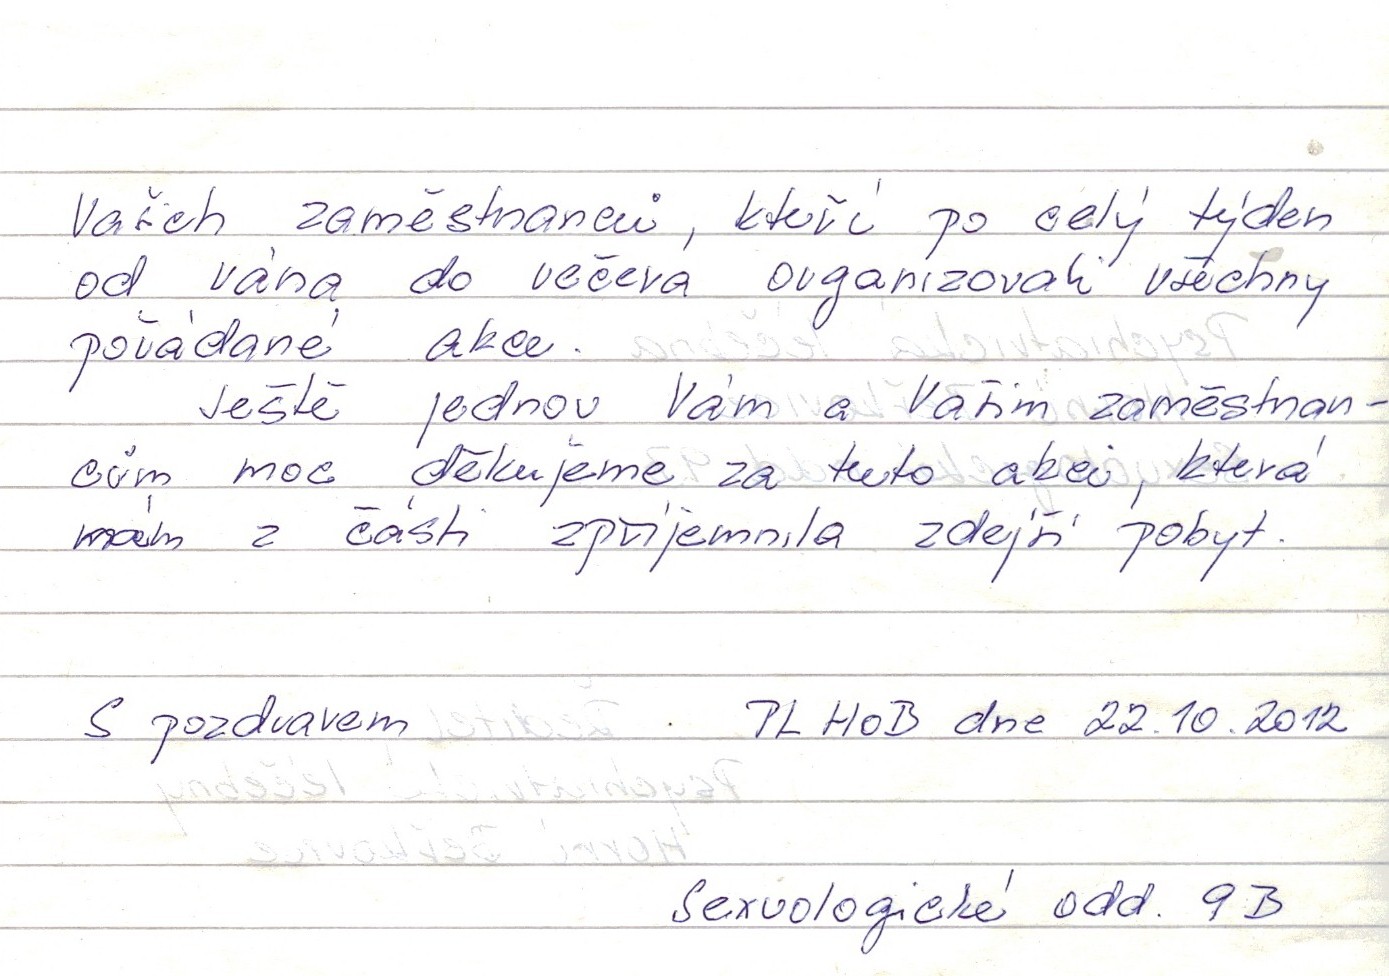 Vašich zaměstnanců, kteří po celý týden
od rána do večera organizovali všechny
pořádané akce.
Ještě jednou Vám a Vašim zaměstnan-
cům moc děkujeme za tuto akci, která
nám z části zpříjemnila zdejší pobyt.
S pozdravem PL HoB dne 22.10.2012
Sexuologické odd. 9B